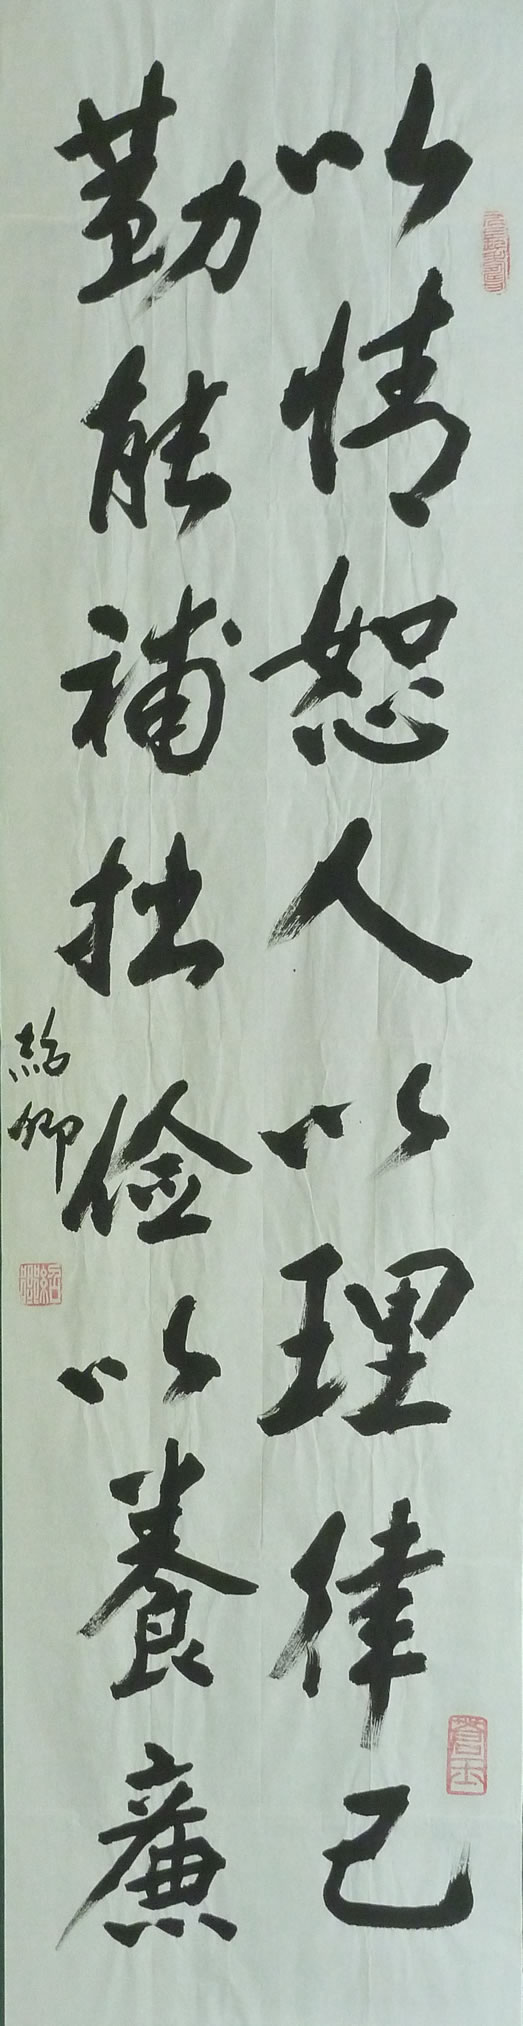 以情恕人以理律己
勤能補拙俭以養廉